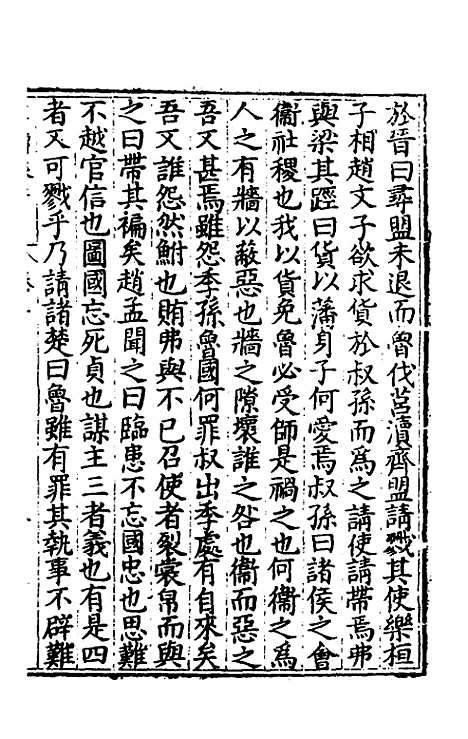 於晉曰尋盟未退而魯伐莒瀆齊盟請戮其使樂桓
子相趙文子欲求貨於叔孫而為之請使請帶焉弗
與梁其踁曰貨以藩身子何愛焉叔孫曰諸侯之會
衞社稷也我以貨免魯必受師是禍之也何衞之為
人之有牆以蔽惡也牆之隙壞誰之咎也衞而惡之
吾又甚焉雖怨季孫魯國何罪叔出季處有自來矣
吾又誰怨然鮒也賄弗與不已召使者裂裳帛而與
之曰帶其褊矣趙孟聞之曰臨患不忘國忠也思難
不越官信也圖國忘死貞也謀主三者義也有是四
者又可戮乎乃請諸楚曰魯雖有罪其執事不辟難